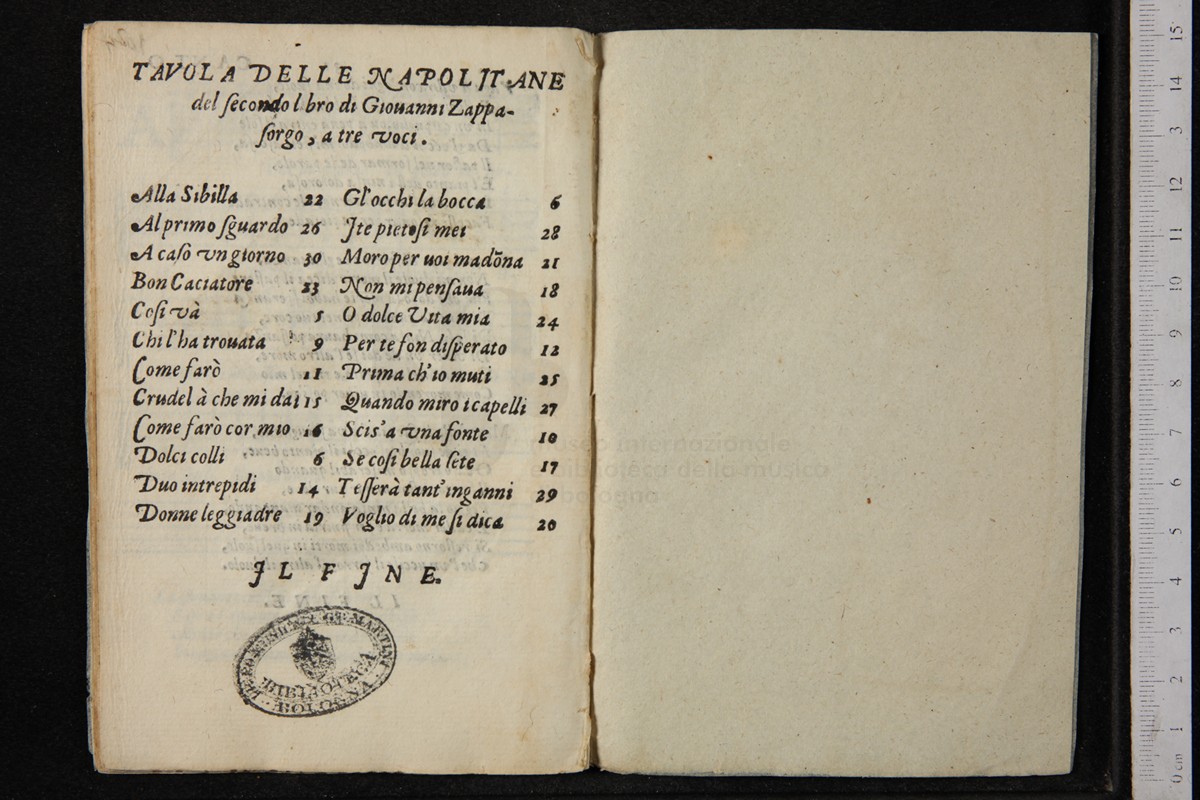 TAVOLA DELLE NAPOLITANE
del secondo l bro di Giouanni Zappa-
sorgo, a tre voci.
Alla Sibilla 22
Al primo sguardo 26
A caso vn giorno 30
Bon Caciatore 23
Cosi và 5
Chi l'ha trouata 9
Come farò 11
Crudel à che mi dai 15
Come farò cor, mio 16
Dolci colli 6
Duo intrepidi 14
Donne leggiadre 19
Gl'occhi la bocca 6
Ite pietosi mei 28
Moro per uoi madōna 21
Non mi pensaua 18
O dolce Vita mia 24
Per te son disperato 12
Prima ch'io muti 25
Quando miro i capelli 27
Scis'a vna fonte 10
Se cosi bella sete 17
Tesserà tant'inganni 29
Voglio di me si dica 20
IL FINE.
MARTINI
BIBLIOTECA
BOLOGNA
museo internazionale
e biblioteca della musica
di bologna
0 cm 1 2 3 4 5 6 7 8 9 10 11 12 13 14 15